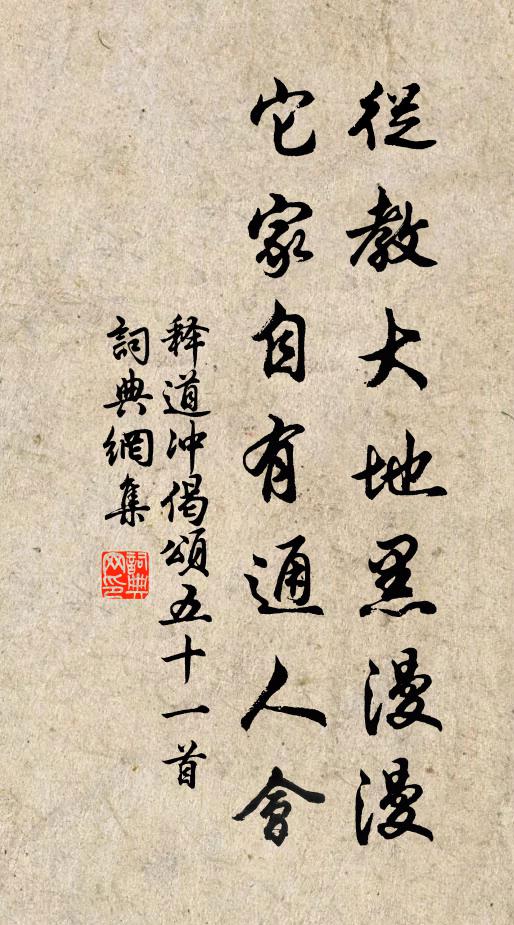 從教大地黑漫漫
它家自有通人會
释道沖偈頌五十一首
詞典網集
詞典網印